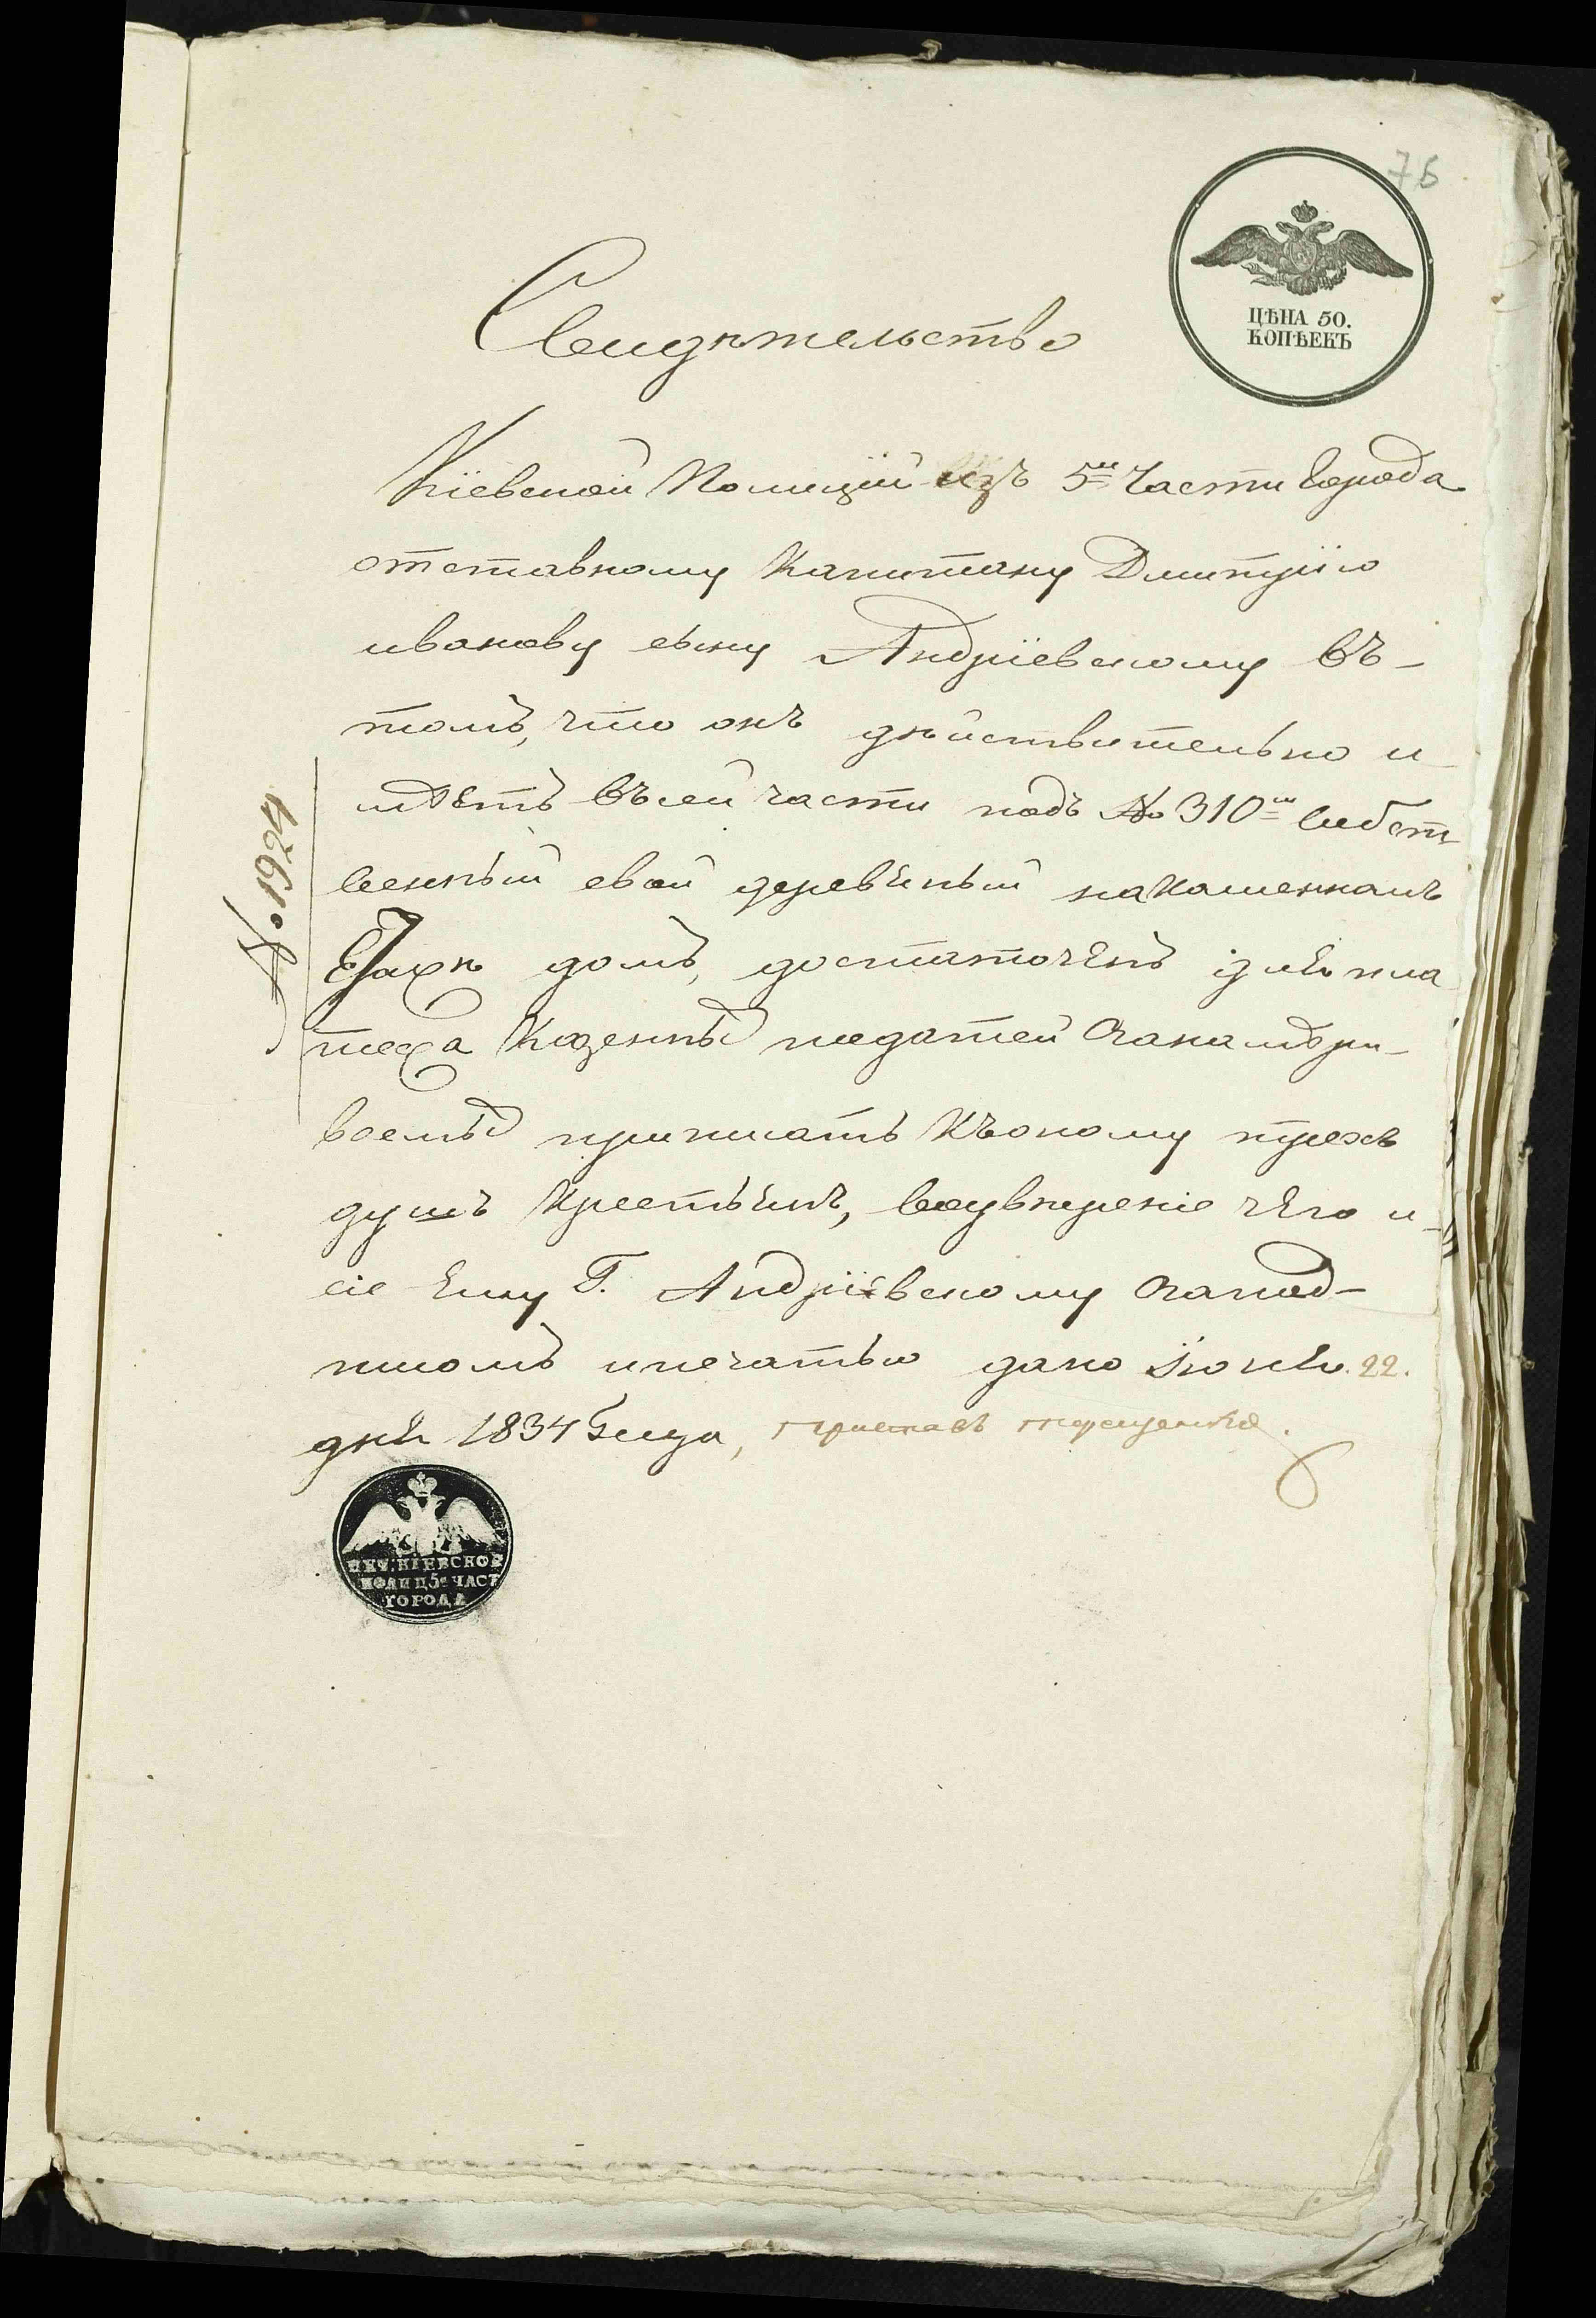 75
ЦѢНА 50.
КОПѢЕКЪ
Свидѣтельство
Кіевской Полиціи изъ 5й Части Города
отставному Капитану Дмитрію
иванову сыну Андріевскому въ-
томъ, что онъ дѣйствительно и-
мѣетъ въ сей части подъ № 310м собст
венный свой деревяный на каменномъ
домъ, достаточенъ для пла
тежа Казенныхъ податей
приписать къ оному трехъ
душъ Крестьянъ, чего и-
сіе Ему Г. Андріевскому Запод-
писомъ и печатью дано Іюня 22.
дня 1834 Года, Приставъ
№ 1924
КІЕВСКОЙ
ПОЛИЦ 5й ЧАСТ
ГОРОДА